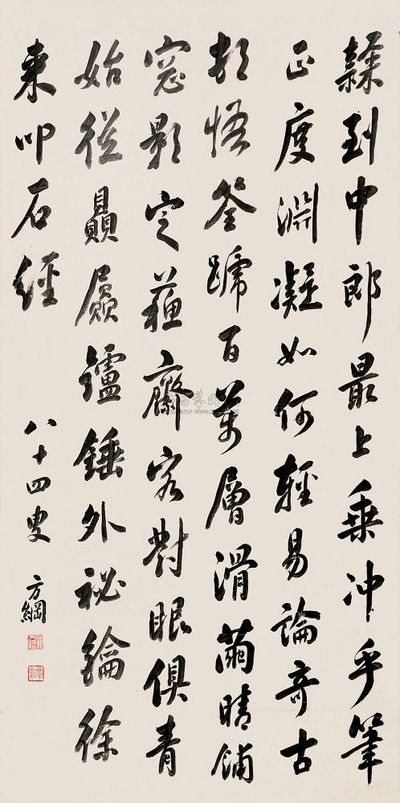 隸到中郎最上乘冲乎筆
正度淵凝如何輕易論奇古
頓悟筌蹄百萬層滑繭晴鋪
窓影定蘇齋客對眼俱青
始從贔屭鑪錘外祕鑰徐
來叩石經
八十四叟
方綱